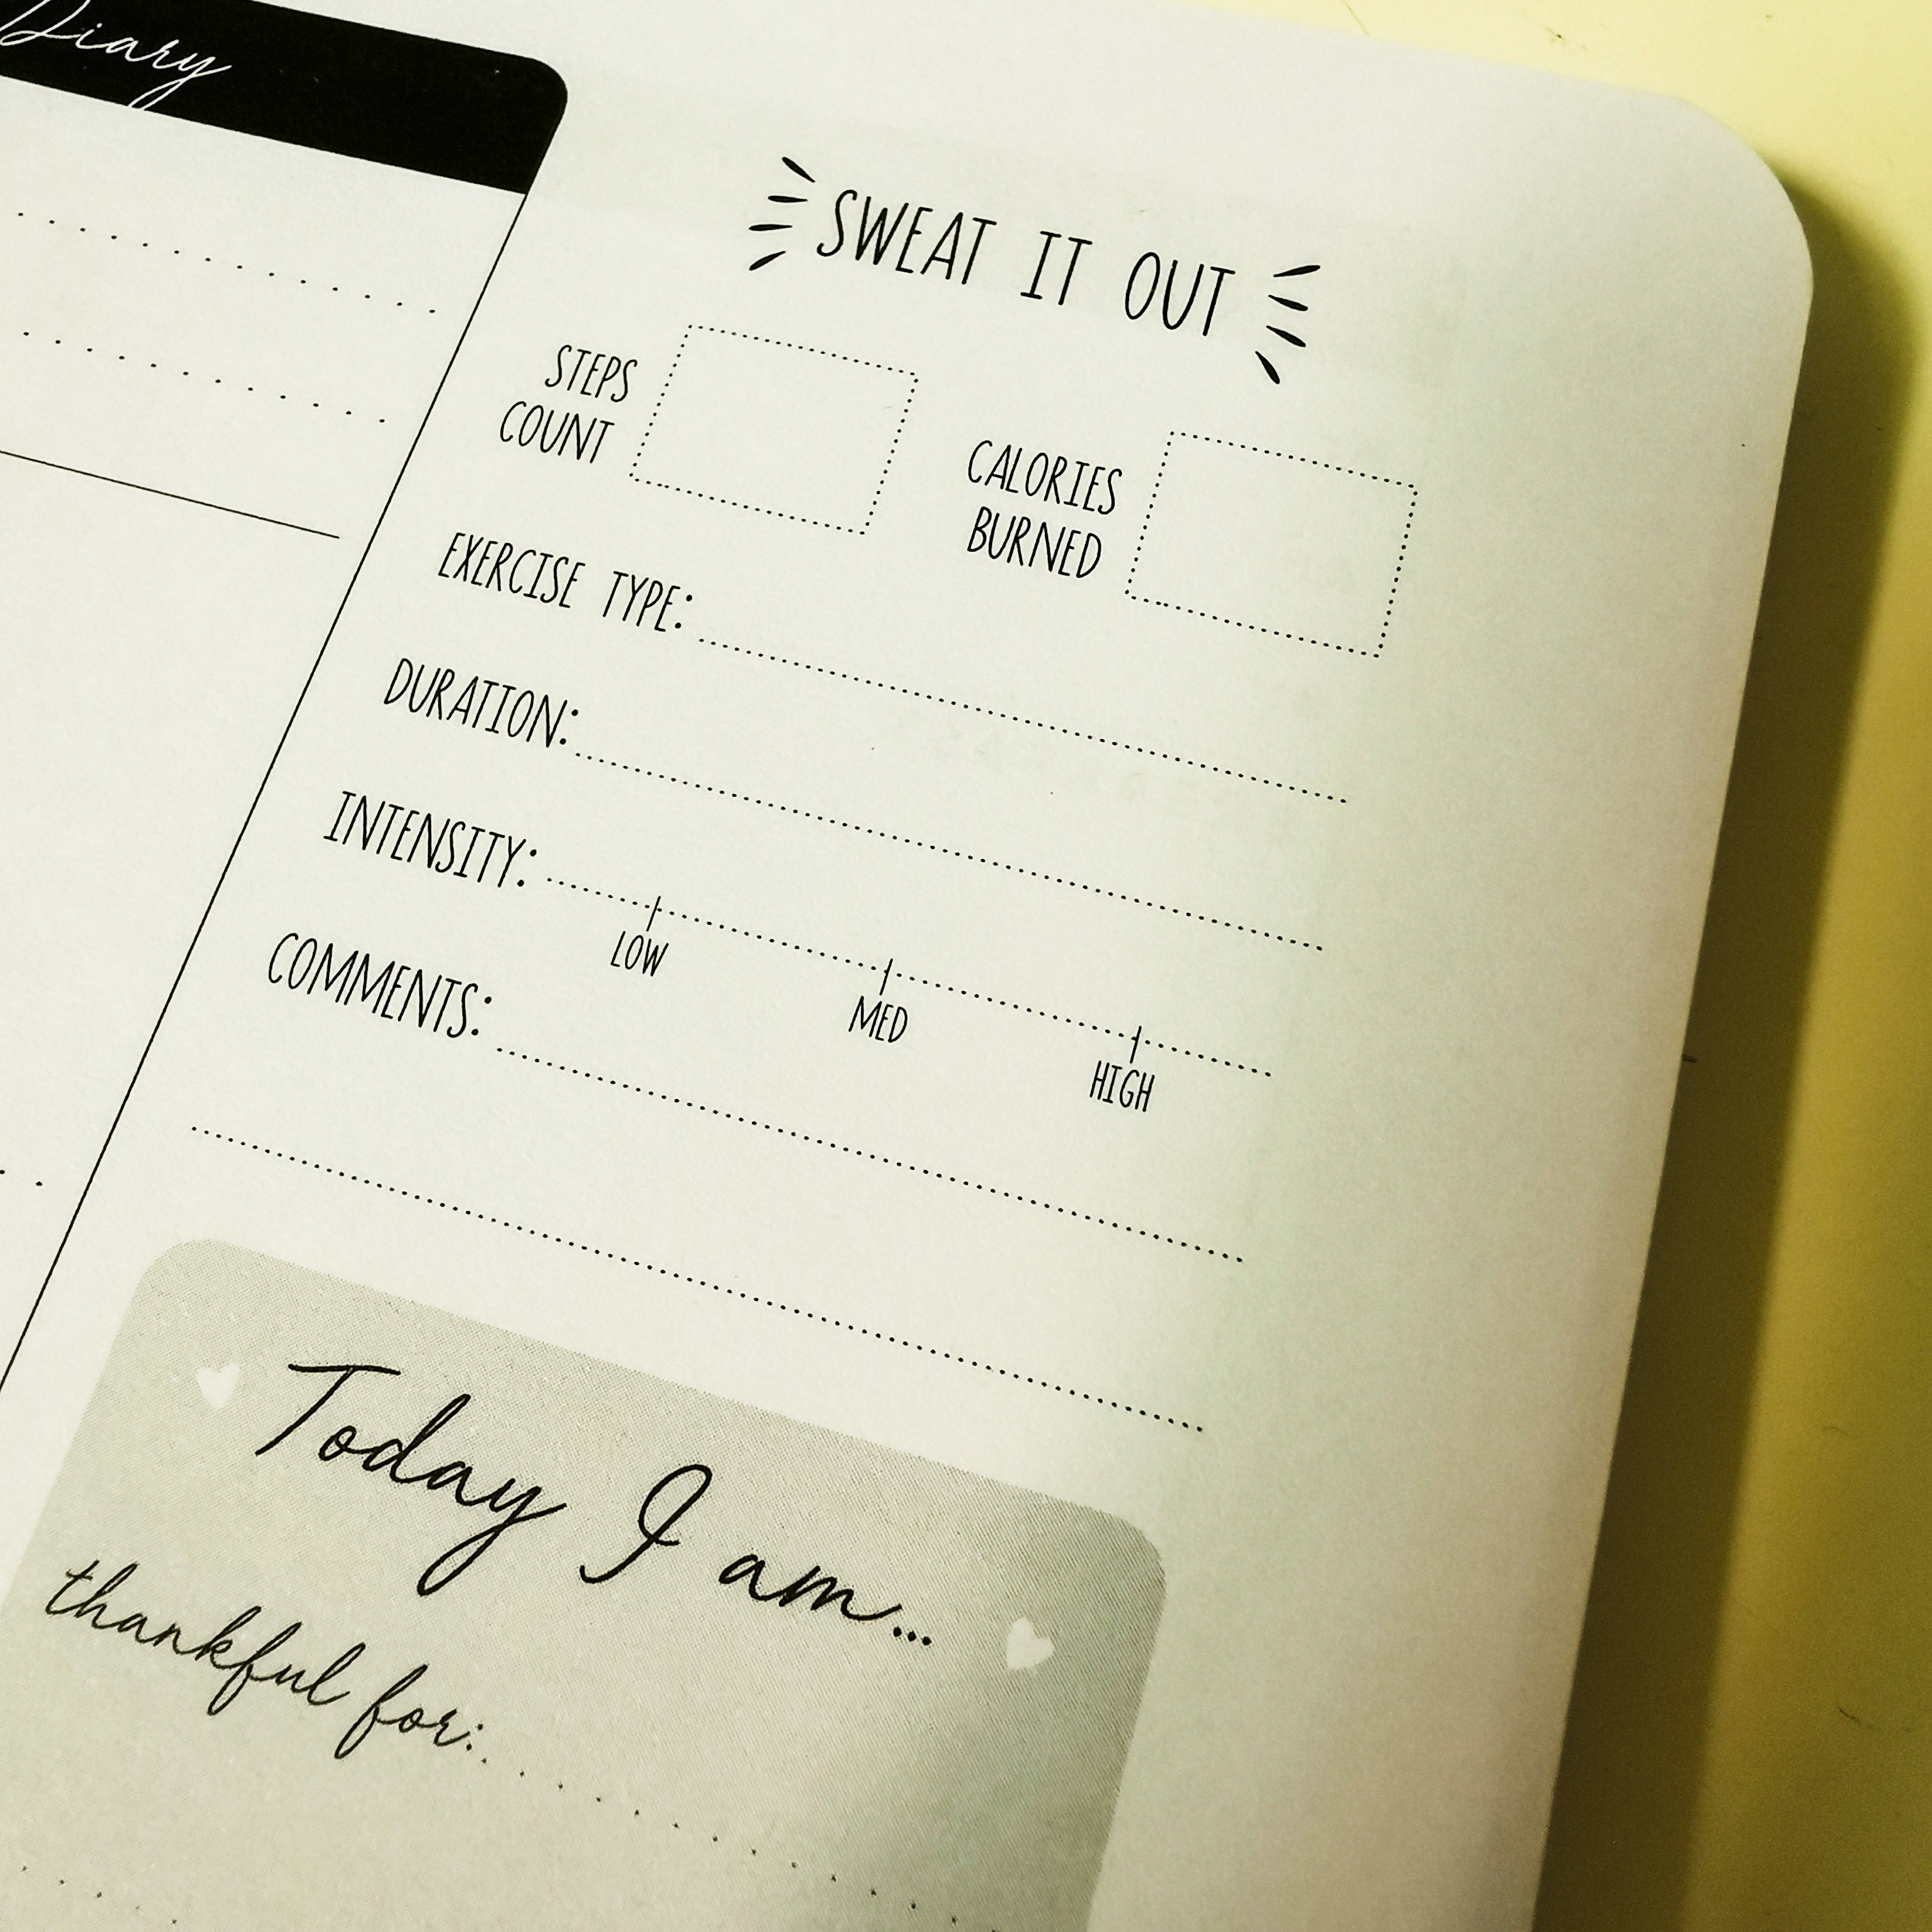 Diary
SWEAT IT OUT
STEPS
COUNT
CALORIES
BURNED
EXERCISE TYPE:
DURATION:
INTENSITY:
LOW
MED
HIGH
COMMENTS:
Today I am...
thankful for: